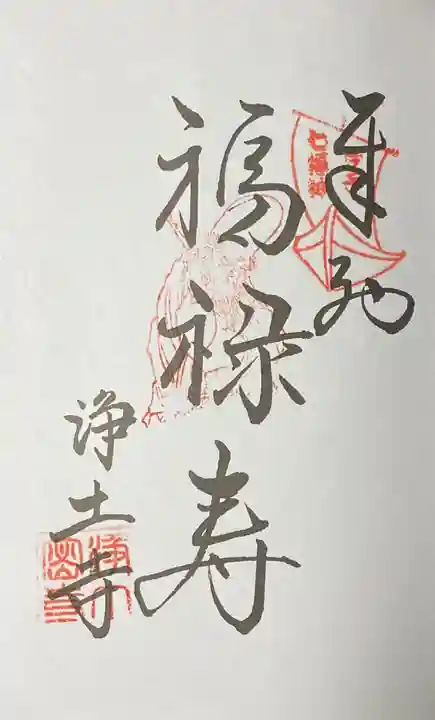 奉拝
七福神
福禄寿
浄土寺